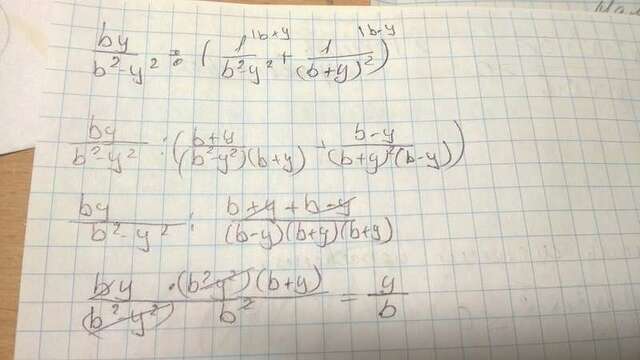 by/(b²-y²) : (1/(b²-y²) |b+y + 1/(b+y)² |b-y)
by/(b²-y²) : ((b+y)/((b²-y²)(b+y)) + (b-y)/((b+y)²(b-y)))
by/(b²-y²) : (b+y+b-y)/((b-y)(b+y)(b+y))
by·(b²-y²)(b+y)/((b²-y²) b²) = y/b